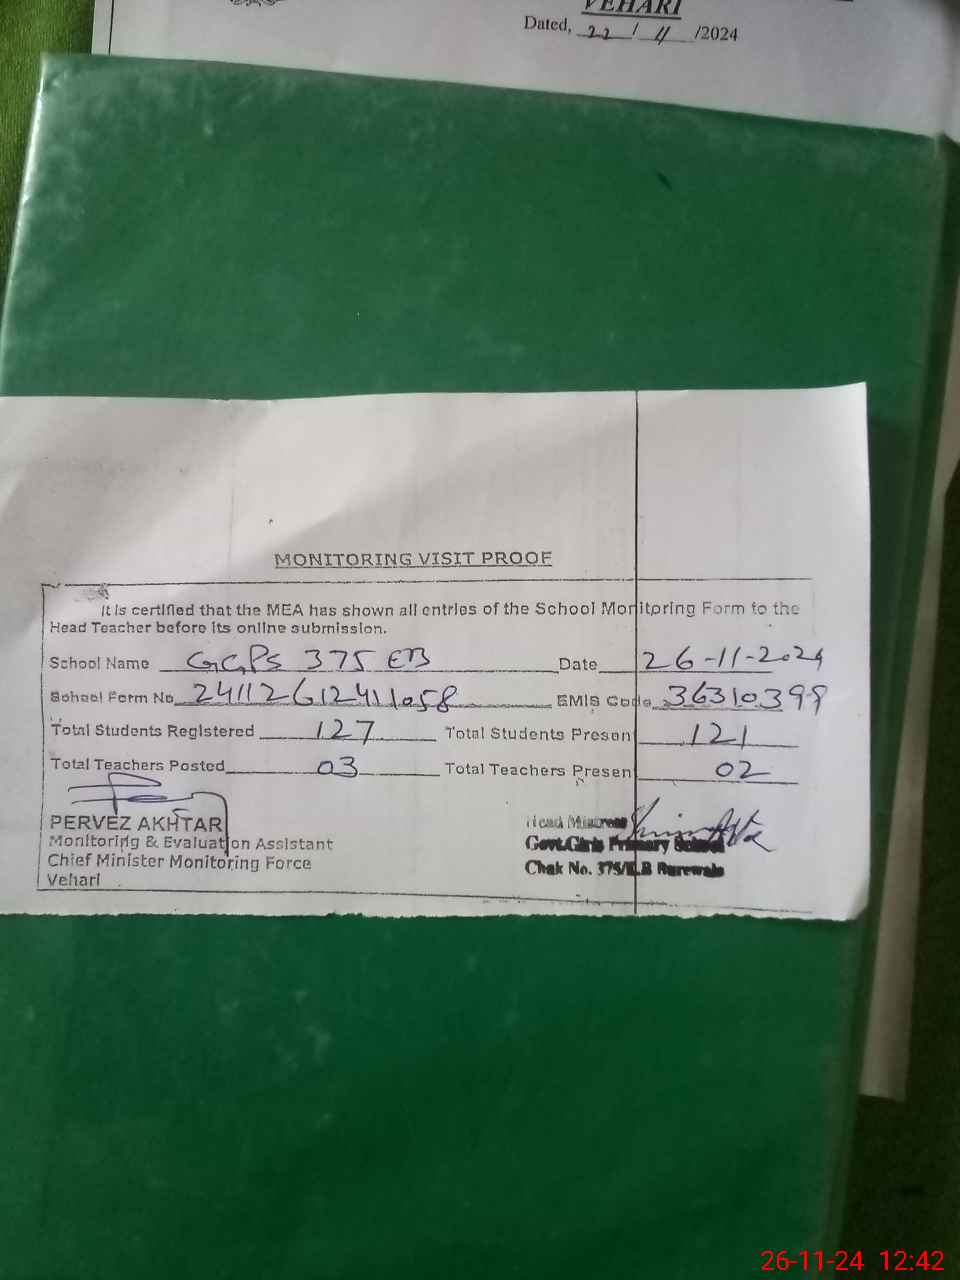 VEHARI
Dated, 22 / 11 /2024
MONITORING VISIT PROOF
It is certified that the MEA has shown all entries of the School Monitoring Form to the
Head Teacher before its online submission.
School Name GGPS 375 EB Date 26-11-2024
School Form No 24112612411058 EMIS Code 36310399
Total Students Registered 127 Total Students Presen 121
Total Teachers Posted 03 Total Teachers Presen 02
PERVEZ AKHTAR
Monitoring & Evaluation Assistant
Chief Minister Monitoring Force
Vehari
Head Mistress
Govt.Girls Primary School
Chak No. 375/E.B Burewala
26-11-24 12:42